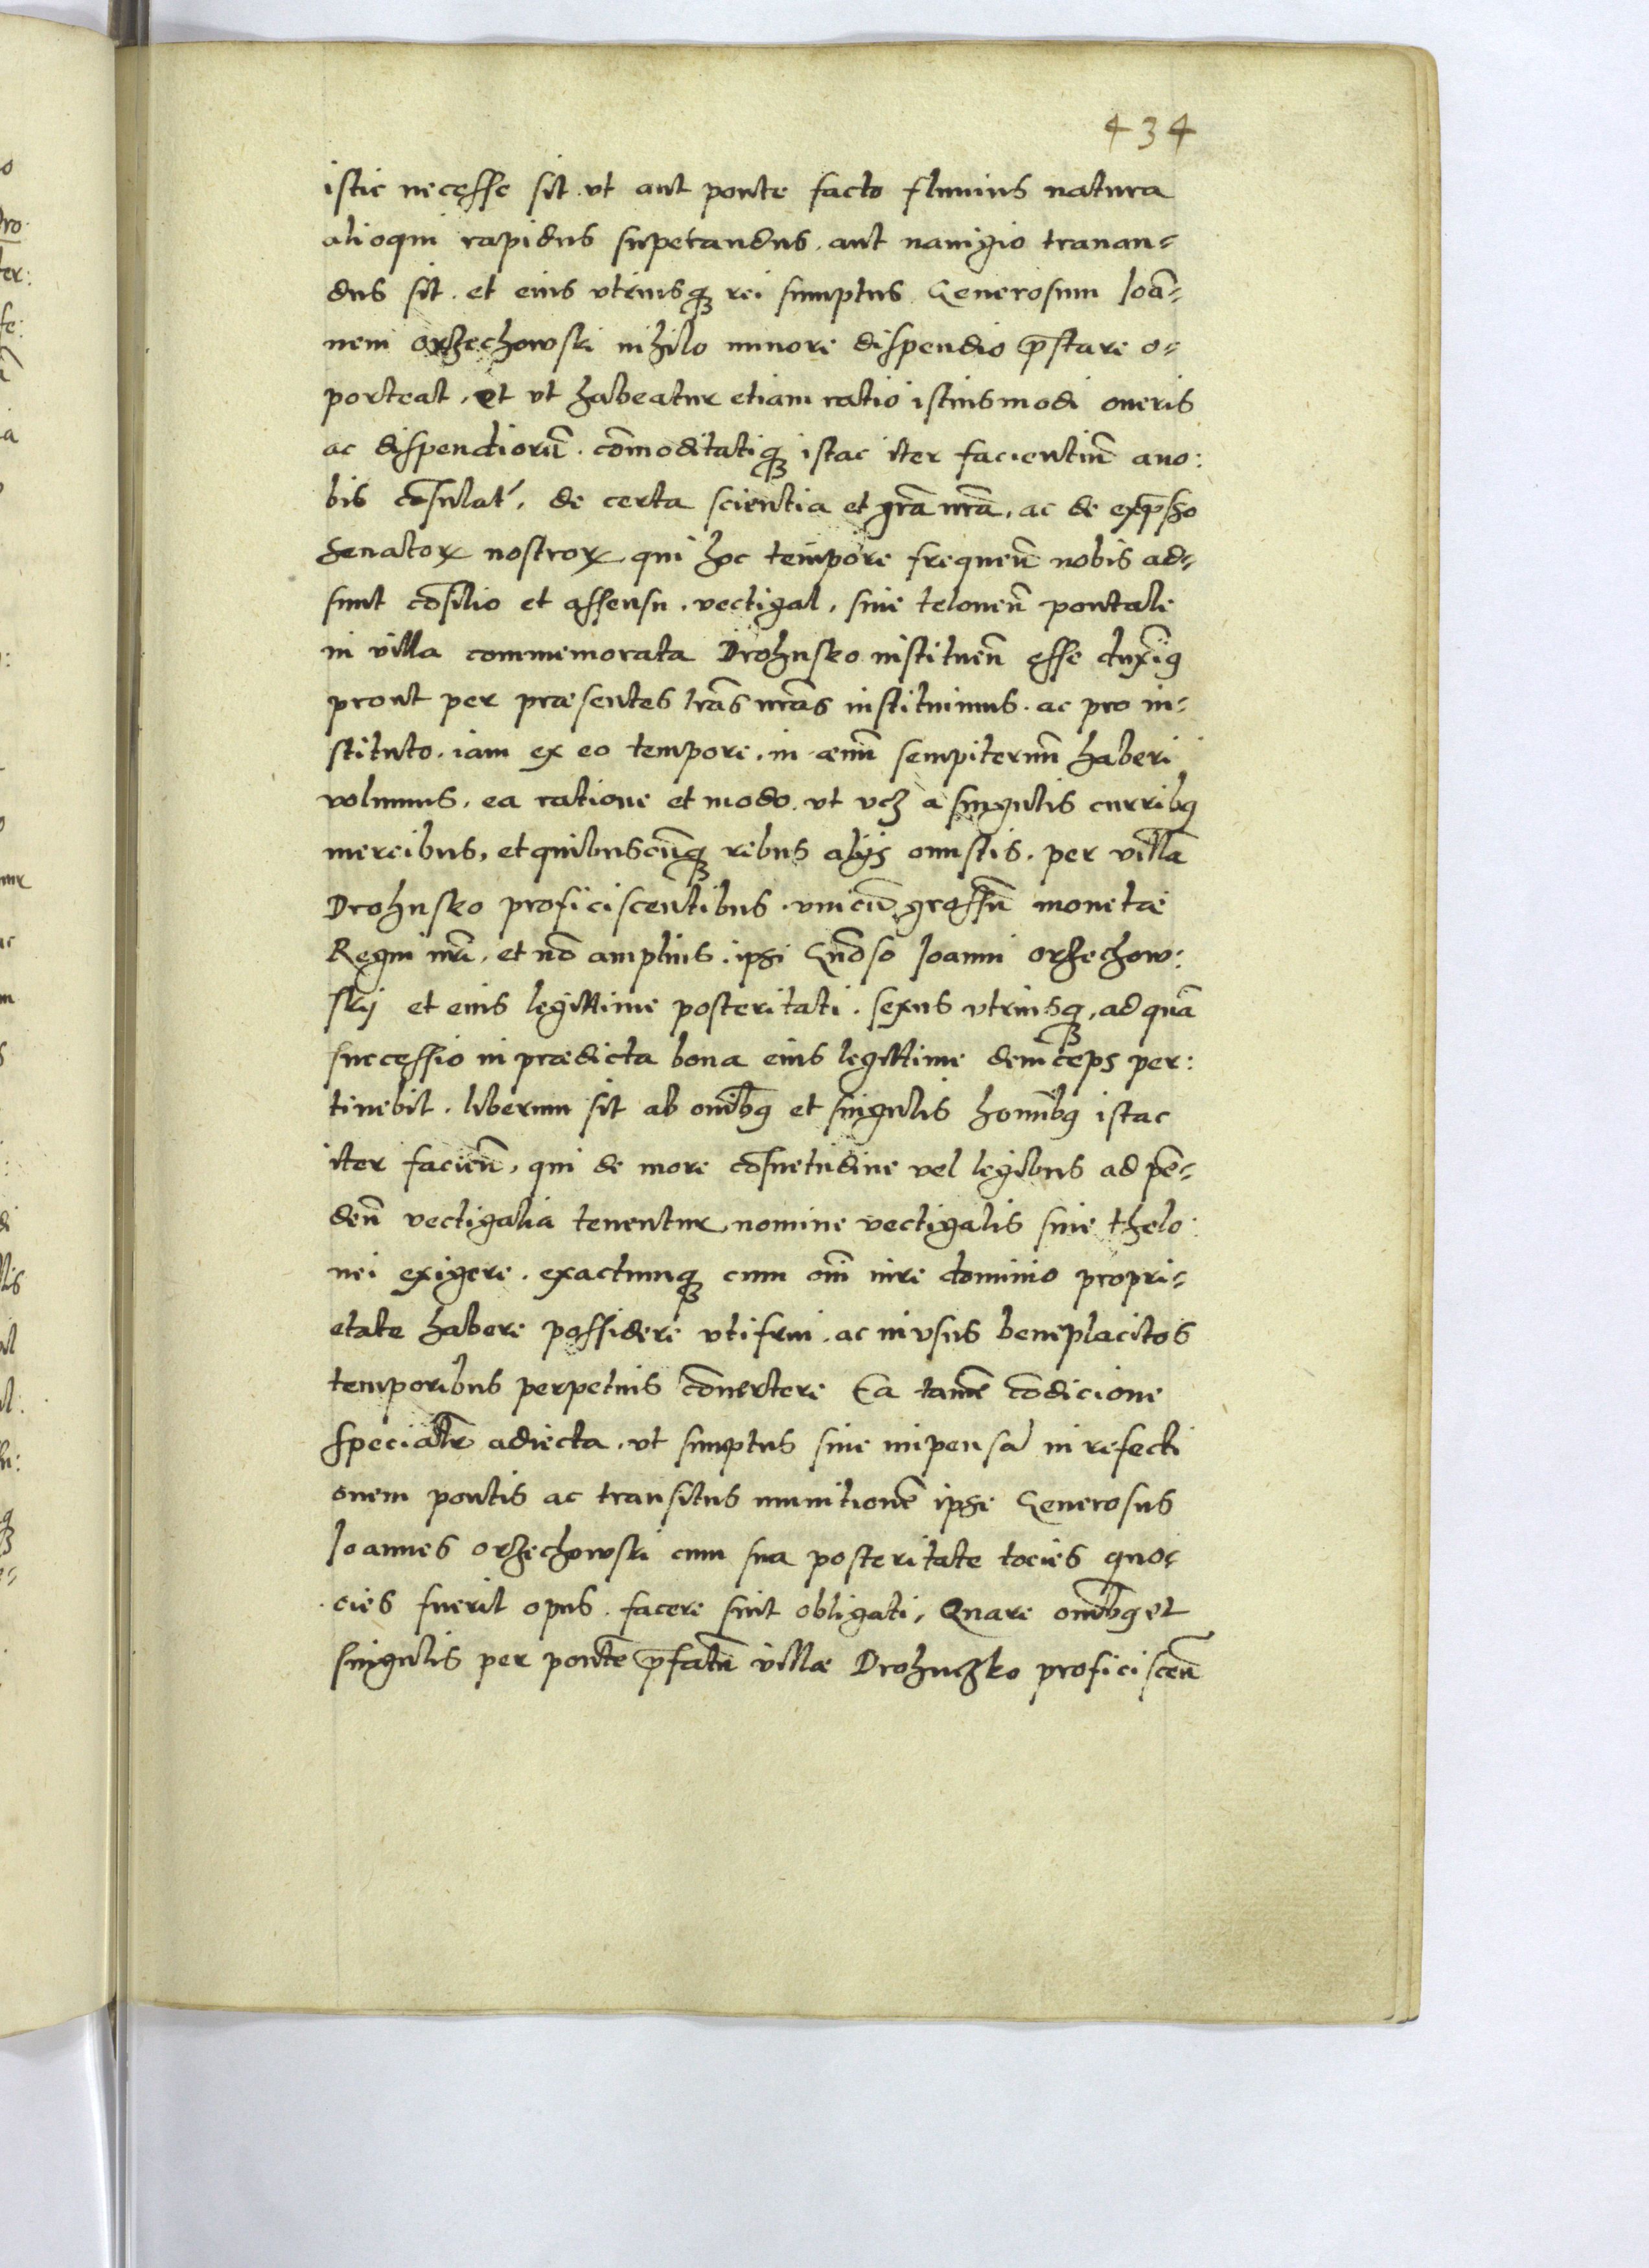 434
istic necesse sit. vt aut ponte facto fluuius natura
alioqui rapidus superandus. aut nauigio tranan-
dus sit. et eius vtriusq3 rei sumptus Generosum Ioā-
nem orzechowski nihilo minore dispendio p̄stare o-
porteat, et vt habeatur etiam ratio istiusmodi oneris
ac dispendiorū. cōmoditatiq3 istac iter facientiū a no:
bis cōsulat', de certa scientia et grā nrā, ac de exp̄sso
Senatorꝝ nostrorꝝ qui hoc tempore frequen̄ nobis ad-
sunt cōsilio et assensu. vectigal, siue teloneū pontale
in villa commemorata Drohusko instituen̄ esse duxim9
prout per praesentes lrās nrās instituimus. ac pro in-
stituto. iam ex eo tempore. in aeuū sempiternū haberi
volumus, ea ratione et modo. vt vcz a singulis currib9
mercibus, et quibuscūq3 rebus alijs onustis. per villā
Drohusko proficiscentibus. vnicū grossū monetae
Regni nrī, et nō amplius. ipsi Gnōso Ioanni orzechow:
skij et eius legittime posteritati. sexus vtriusq3, ad quā
successio in praedicta bona eius legittime deinceps per:
tinebit. liberum sit ab omīb9 et singulis homīb9 istac
iter facien̄, qui de more cōsuetudine vel legibus ad pē-
den̄ vectigalia tenentur nomine vectigalis siue thelo:
nei exigere. exactumq3 cum om̄i iure dominio propri-
etate habere possidere vtifrui. ac in vsus beneplacitos
temporibus perpetuis cōuertere Ea tamē cōdicione
specialr̄ adiecta, vt sumptus siue impensa in refecti
onem pontis ac transitus munitionē ipse Generosus
Ioannes orzechowski cum sua posteritate tocies quo-
cies fuerit opus. facere sint obligati, Quare omīb9 et
singulis per pontē p̄fatū villae Drohuczko proficiscen̄